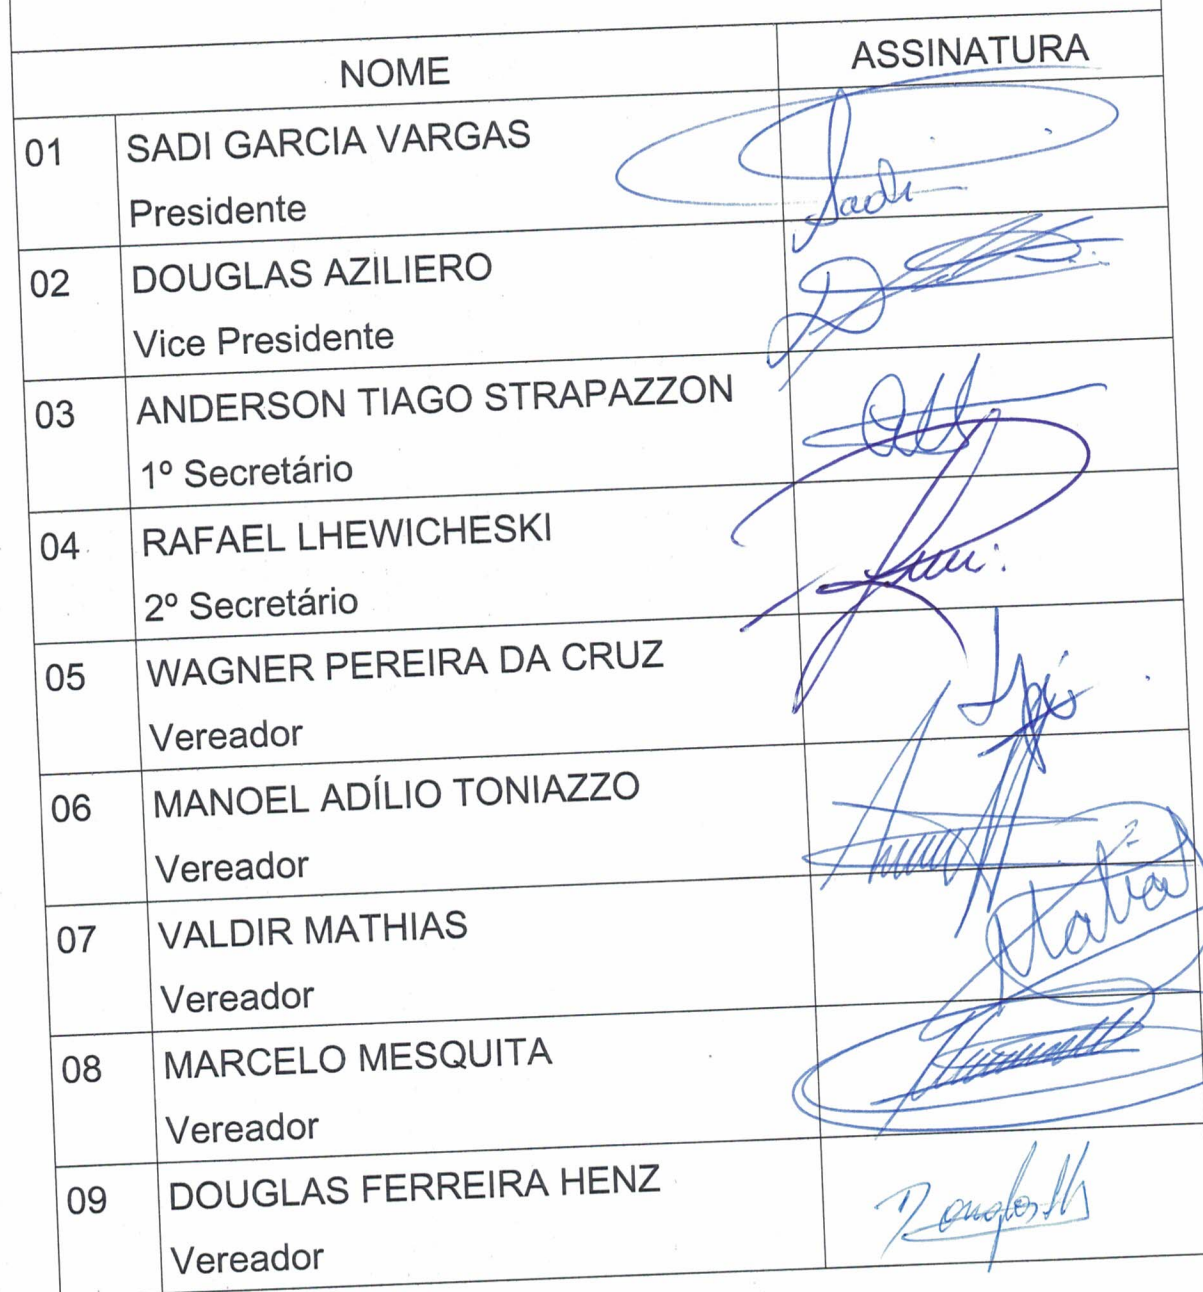 NOME ASSINATURA
01 SADI GARCIA VARGAS Sadi
Presidente
02 DOUGLAS AZILIERO
Vice Presidente
03 ANDERSON TIAGO STRAPAZZON
1º Secretário
04 RAFAEL LHEWICHESKI
2º Secretário
05 WAGNER PEREIRA DA CRUZ
Vereador
06 MANOEL ADÍLIO TONIAZZO
Vereador
07 VALDIR MATHIAS
Vereador
08 MARCELO MESQUITA
Vereador
09 DOUGLAS FERREIRA HENZ
Vereador